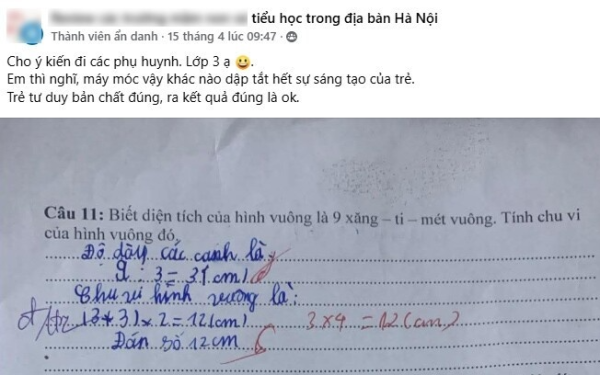 tiểu học trong địa bàn Hà Nội
Thành viên ẩn danh · 15 tháng 4 lúc 09:47 ·
Cho ý kiến đi các phụ huynh. Lớp 3 ạ 😀.
Em thì nghĩ, máy móc vậy khác nào dập tắt hết sự sáng tạo của trẻ.
Trẻ tư duy bản chất đúng, ra kết quả đúng là ok.
Câu 11: Biết diện tích của hình vuông là 9 xăng – ti – mét vuông. Tính chu vi
của hình vuông đó.
Độ dày các cạnh là
9 : 3 = 3 (cm)
Chu vi hình vuông là:
(3 + 3) × 2 = 12 (cm) 3 × 4 = 12 (cm)
Đán số 12 cm